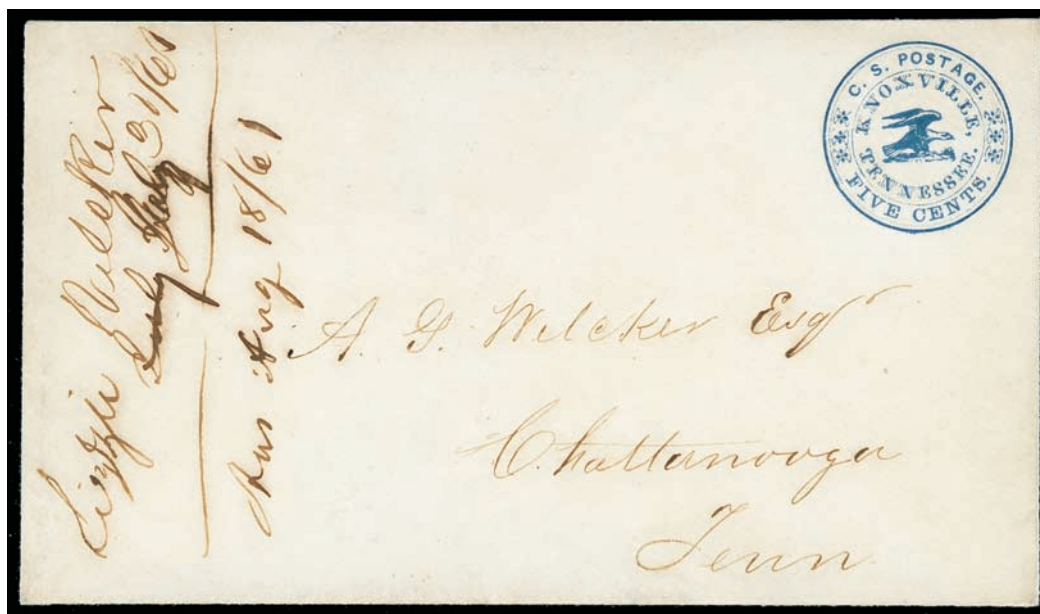 C. S. POSTAGE.
KNOXVILLE,
TENNESSEE.
FIVE CENTS.
Lizzie Welcker
July 31/61
Ans Aug 18/61
A. G. Welcker Esqr
Chattanooga
Tenn